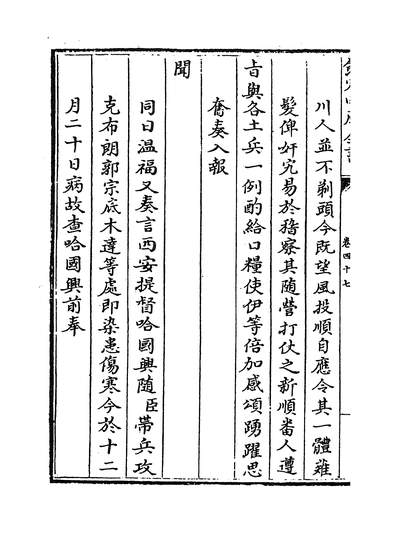 卷四十七
川人並不剃頭今既望風投順自應令其一體薙
髮俾奸宄易於稽察其隨營打仗之新順畨人遵
㫖與各土兵一例酌給口糧使伊等倍加感頌踴躍思
奮奏入報
聞
同日温福又奏言西安提督哈國興隨臣帶兵攻
克布朗郭宗底木達等處即染患傷寒今於十二
月二十日病故查哈國興前奉